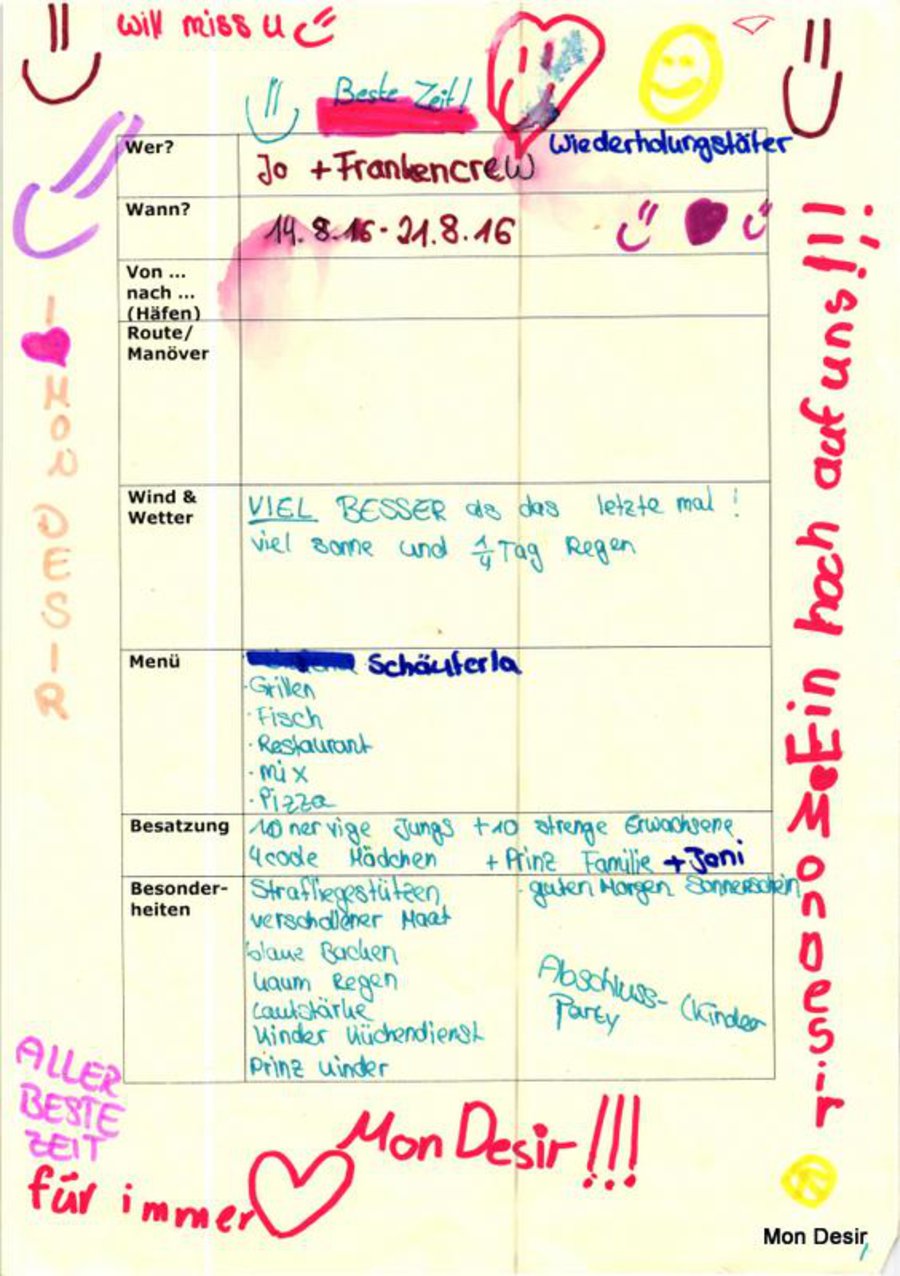 will miss u
Beste Zeit!
Wiederholungstäter
Wer?
Jo + Frankencrew
Wann?
14.8.16 - 21.8.16
Von ...
nach ...
(Häfen)
Route/
Manöver
Wind &
Wetter
VIEL BESSER als das letzte mal!
viel sonne und 1/4 Tag Regen
Menü
Schäuferla
· Grillen
· Fisch
· Restaurant
· Mix
· Pizza
Besatzung
10 nervige Jungs + 10 strenge Erwachsene
4 coole Mädchen + Prinz Familie + Joni
Besonder-
heiten
Strafliegestützen
verschollener Maat
blaue Backen
kaum Regen
Lautstärke
Kinder Küchendienst
Prinz kinder
· guten Morgen Sonnenschein
Abschluss-
Party
(Kinder
I
MON DESIR
Ein hoch auf uns!!!
Mon Desir
ALLER
BESTE
ZEIT
für immer
Mon Desir!!!
Mon Desir